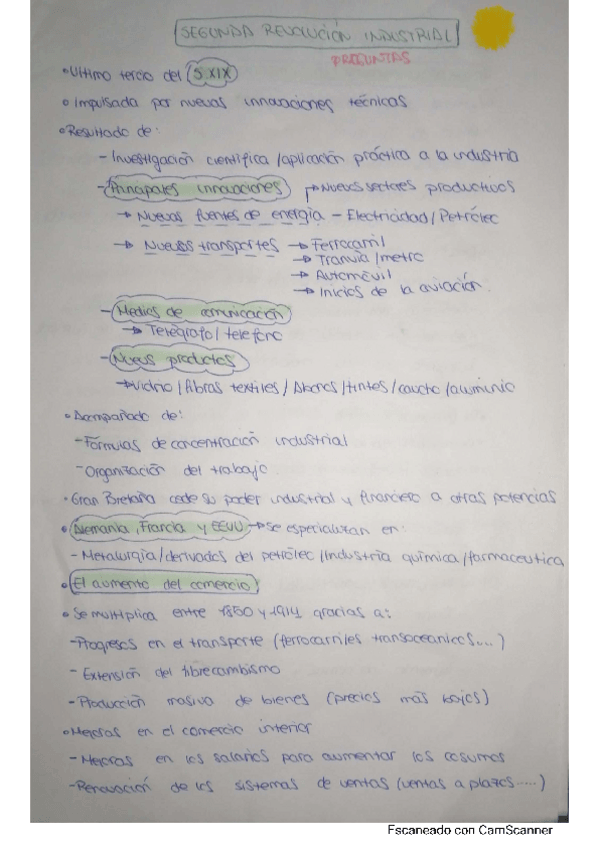 SEGUNDA REVOLUCIÓN INDUSTRIAL
PREGUNTAS
• Ultimo tercio del S.XIX
• Impulsada por nuevas innovaciones técnicas
• Resultado de:
- Investigación científica /aplicación práctica a la industria
- Principales innovaciones → Nuevos sectores productivos
→ Nuevas fuentes de energía - Electricidad / Petróleo
→ Nuevos transportes → Ferrocarril
→ Tranvía / metro
→ Automóvil
→ Inicios de la aviación.
- Medios de comunicación
→ Telégrafo / teléfono
- Nuevos productos
→ vidrio / fibras textiles / Abonos / tintes / caucho / aluminio
• Acompañado de:
- Fórmulas de concentración industrial
- Organización del trabajo
• Gran Bretaña cede su poder industrial y financiero a otras potencias
• Alemania, Francia y EEUU → Se especializan en:
- Metalurgia / derivados del petróleo / Industria química / farmaceutica
• El aumento del comercio
• Se multiplica entre 1850 y 1914 gracias a:
- Progresos en el transporte (ferrocarriles transoceanicos....)
- Extensión del librecambismo
- Producción masiva de bienes (precios más bajos)
• Mejoras en el comercio interior
- Mejoras en los salarios para aumentar los cosumos
- Renovación de los sistemas de ventas (ventas a plazos.....)
Escaneado con CamScanner